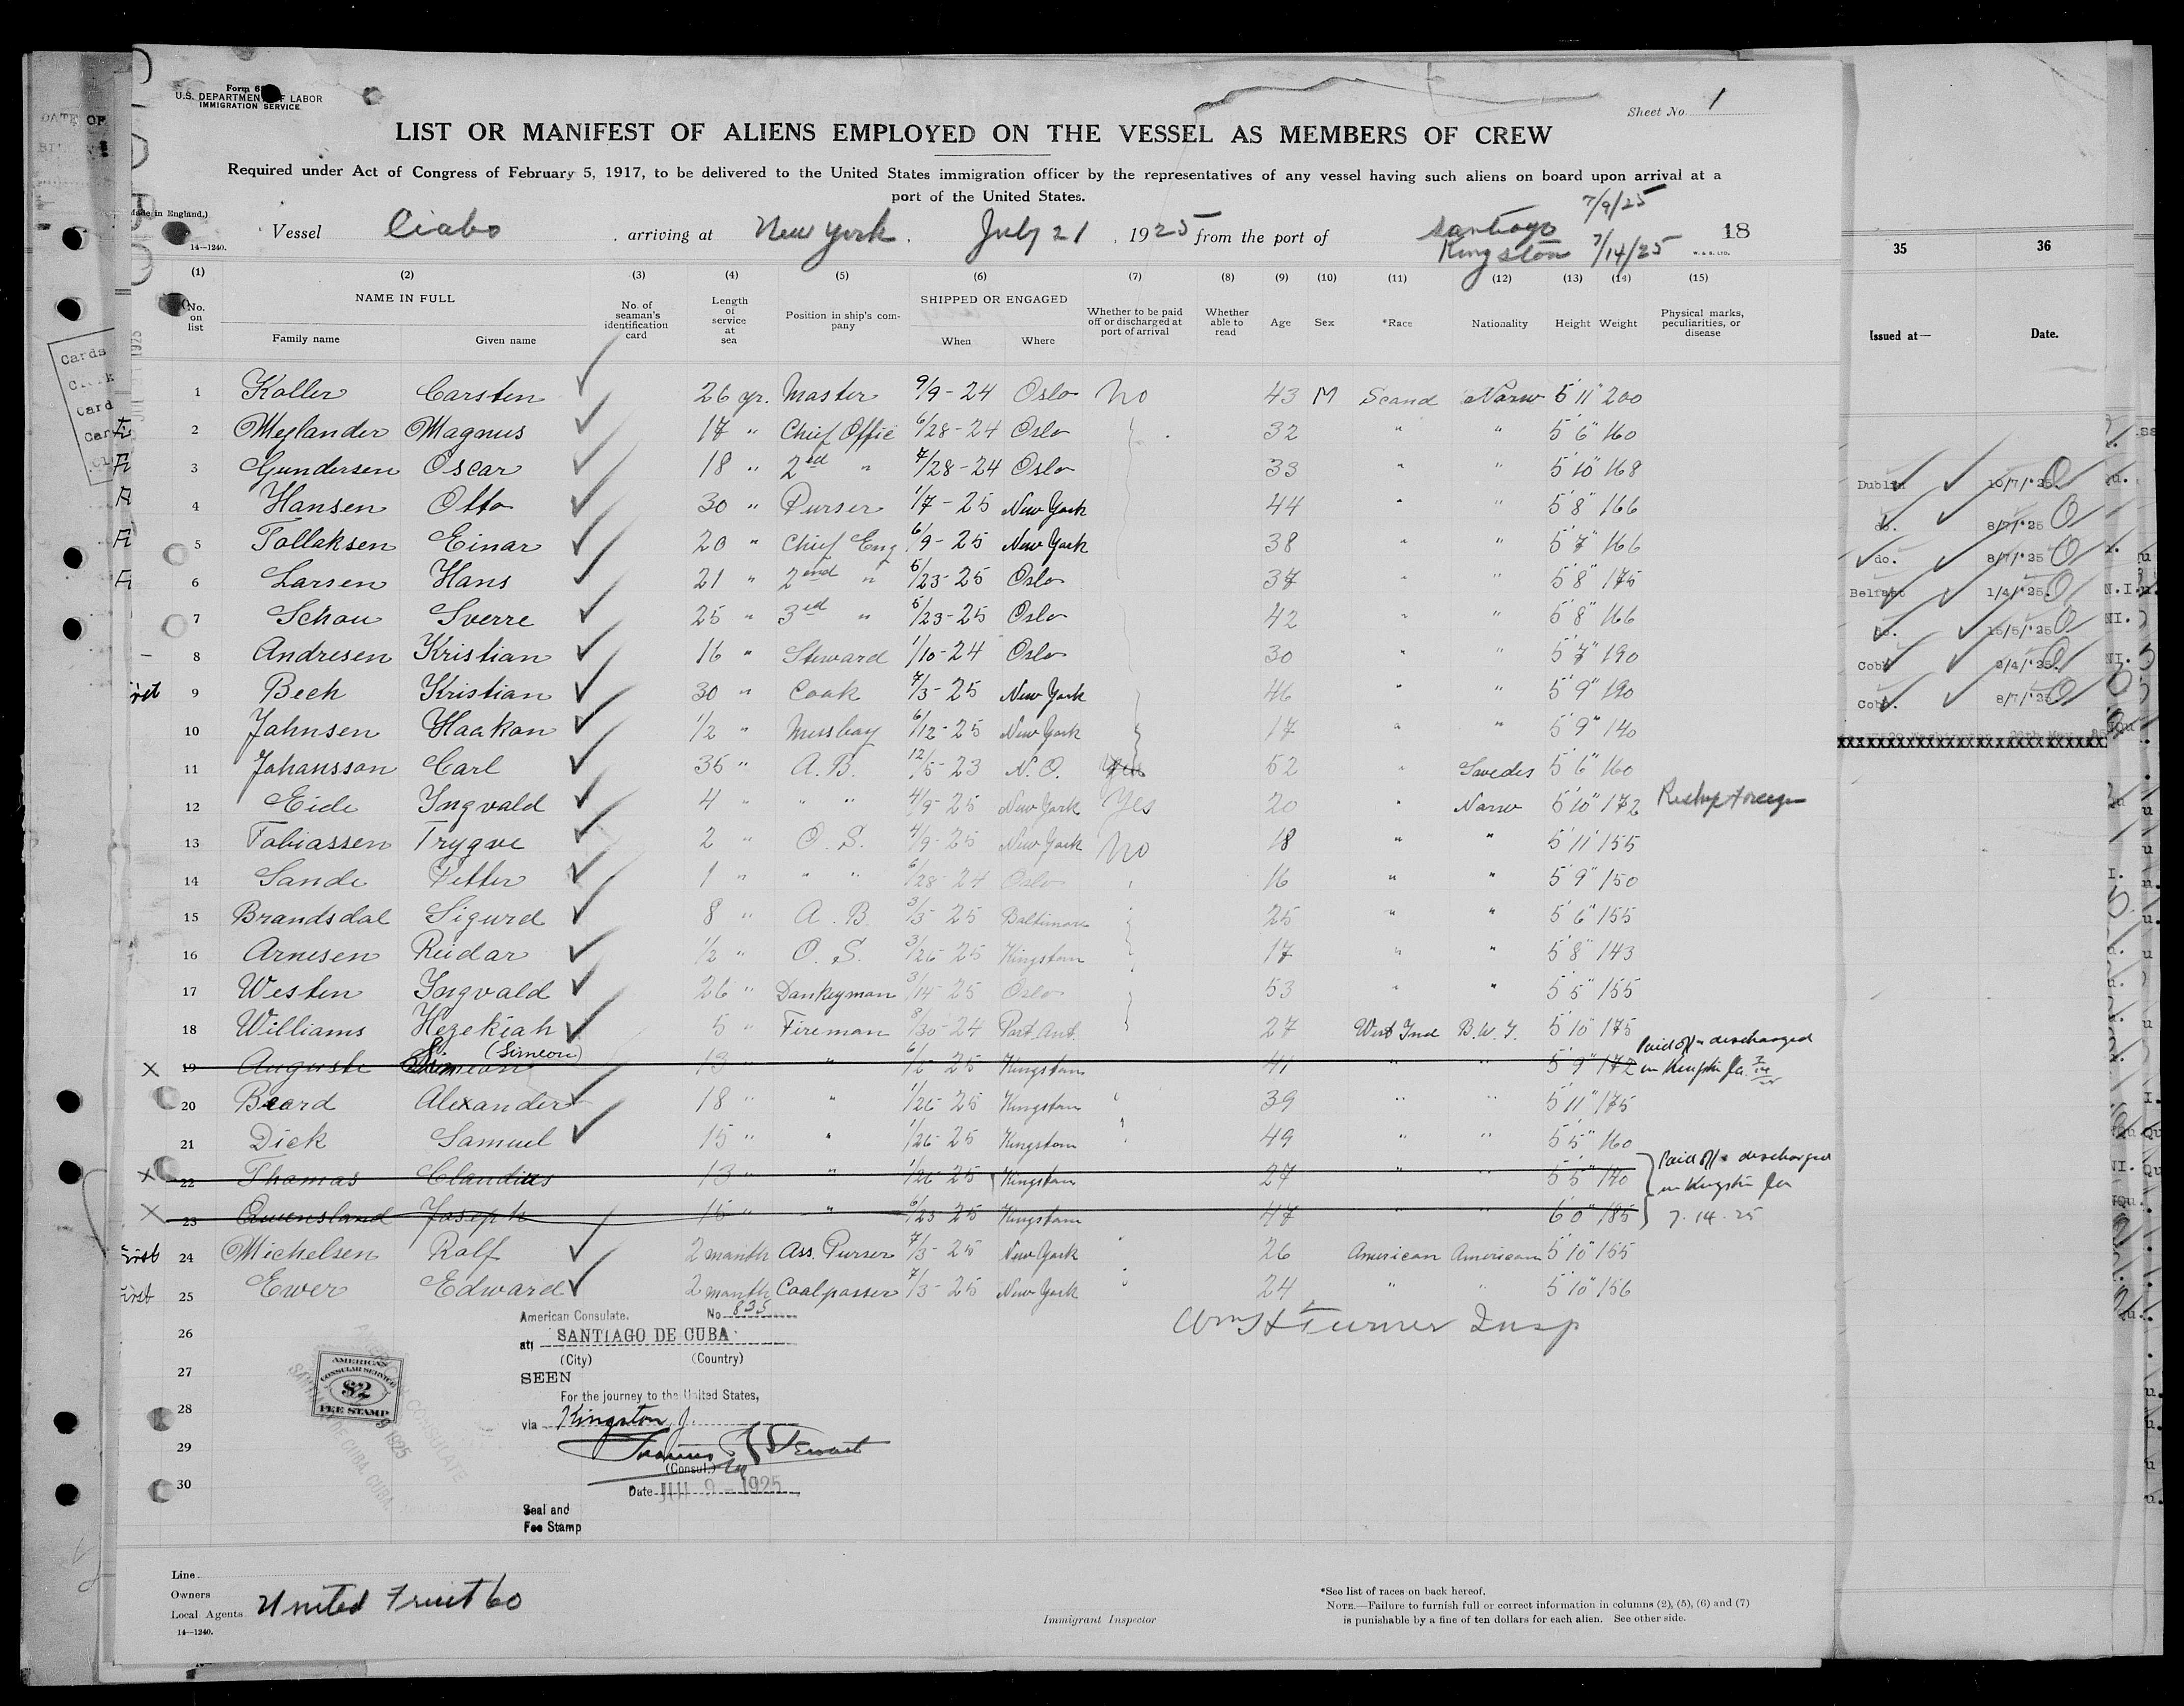 Form 6
U.S. DEPARTMENT OF LABOR
IMMIGRATION SERVICE
Sheet No. 1
LIST OR MANIFEST OF ALIENS EMPLOYED ON THE VESSEL AS MEMBERS OF CREW
Required under Act of Congress of February 5, 1917, to be delivered to the United States immigration officer by the representatives of any vessel having such aliens on board upon arrival at a
port of the United States.
Made in England.)
14—1240.
Vessel Ciabo, arriving at New York, July 21, 1925 from the port of Santiago 7/9/25
Kingston 7/14/25
18
(1) (2) (3) (4) (5) (6) (7) (8) (9) (10) (11) (12) (13) (14) (15)
No. on list
NAME IN FULL
Family name Given name
No. of seaman's identification card
Length of service at sea
Position in ship's company
SHIPPED OR ENGAGED
When Where
Whether to be paid off or discharged at port of arrival
Whether able to read
Age Sex *Race Nationality Height Weight
Physical marks, peculiarities, or disease
35 36
Issued at— Date.
1 Koller Carsten 26 yr. Master 9/9-24 Oslo No 43 M Scand Norw 5'11" 200
2 Meglander Magnus 17 " Chief Offic 6/28-24 Oslo 32 " " 5'6" 160
3 Gundersen Oscar 18 " 2nd " 7/28-24 Oslo 33 " " 5'10" 168
4 Hansen Otto 30 " Purser 1/7-25 New York 44 " " 5'8" 166
5 Tollaksen Einar 20 " Chief Eng 6/9-25 New York 38 " " 5'7" 166
6 Larsen Hans 21 " 2nd " 5/23-25 Oslo 37 " " 5'8" 175
7 Schau Sverre 25 " 3rd " 5/23-25 Oslo 42 " " 5'8" 166
8 Andresen Kristian 16 " Steward 1/10-24 Oslo 30 " " 5'7" 190
9 Bech Kristian 30 " Cook 7/3-25 New York 46 " " 5'9" 190
10 Johnsen Haakon 1/2 " Messboy 6/12-25 New York 17 " " 5'9" 140
11 Johansson Carl 35 " A.B. 12/5-23 N.O. Yes 52 " Swedes 5'6" 160
12 Eide Ingvald 4 " " " 4/9-25 New York Yes 20 " Norw 5'10" 172 Reship foreign
13 Tobiassen Trygve 2 " O.S. 4/9-25 New York No 18 " " 5'11" 155
14 Sande Petter 1 " " " 6/28-24 Oslo 16 " " 5'9" 150
15 Brandsdal Sigurd 8 " A.B. 3/3-25 Baltimore 25 " " 5'6" 155
16 Arnesen Reidar 1/2 " O.S. 3/26-25 Kingston 17 " " 5'8" 143
17 Westen Ingvald 26 " Donkeyman 3/14-25 Oslo 53 " " 5'5" 155
18 Williams Hezekiah 5 " Fireman 8/30-24 Port Ant. 27 West Ind B.W.I. 5'10" 175
X 19 Auguste Simeon (Simeon) 13 " " 25 Kingston 41 " " 5'9" 172 Paid off & discharged
in Kingston Ja.
20 Beard Alexander 18 " " 1/26-25 Kingston 39 " " 5'11" 175
21 Dick Samuel 15 " " 1/26-25 Kingston 49 " " 5'5" 160
X 22 Thomas Claudius 13 " " 1/26-25 Kingston 27 " " 5'5" 140 Paid off & discharged
in Kingston Ja
X 23 Owensland Joseph 15 " " 6/23-25 Kingston 47 " " 6'0" 185 7.14.25
First 24 Michelsen Rolf 2 month Ass. Purser 7/3-25 New York 26 American American 5'10" 155
First 25 Ewer Edward 2 month Coalpasser 7/3-25 New York 24 " " 5'10" 156
26
27
28
29
30
Wm H Turner Insp
American Consulate. No. 835
at SANTIAGO DE CUBA
(City) (Country)
SEEN
For the journey to the United States,
via Kingston, J.
(Consul.)
Date JUL 9 - 1925
Seal and
Fee Stamp
AMERICAN
CONSULAR SERVICE
$2
FEE STAMP
Line
Owners
Local Agents United Fruit Co
14—1240.
Immigrant Inspector
*See list of races on back hereof.
NOTE.—Failure to furnish full or correct information in columns (2), (5), (6) and (7)
is punishable by a fine of ten dollars for each alien. See other side.
Dublin 10/7/'25.
do. 8/7/'25
do. 8/7/'25
Belfast 1/4/'25.
do. 15/5/'25
Cobh 2/4/'25.
Cobh. 8/7/'25